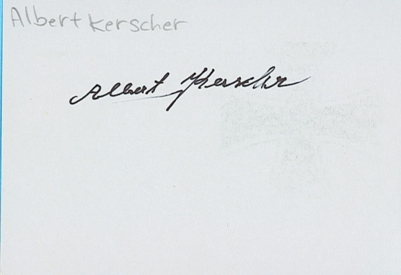 Albert Kerscher
Albert Kerscher